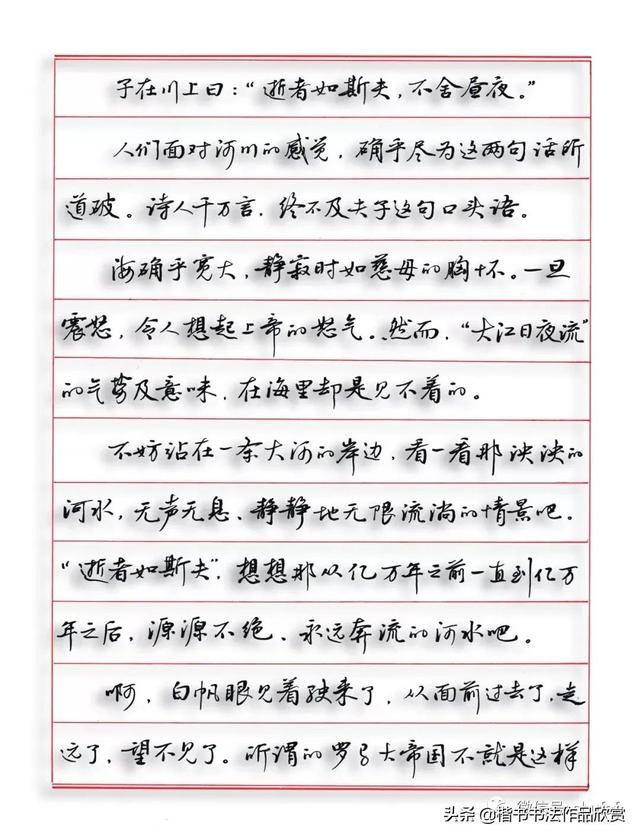 子在川上曰：“逝者如斯夫，不舍昼夜。”
人们面对河川的感觉，确乎尽为这两句话所
道破。诗人千万言，终不及夫子这句口头语。
海确乎宽大，静寂时如慈母的胸怀。一旦
震怒，令人想起上帝的怒气。然而，“大江日夜流”
的气势及意味，在海里却是见不着的。
不妨站在一条大河的岸边，看一看那泱泱的
河水，无声无息、静静地无限流淌的情景吧。
“逝者如斯夫”，想想那从亿万年之前一直到亿万
年之后，源源不绝、永远奔流的河水吧。
啊，白帆眼见着驶来了，从面前过去了，走
远了，望不见了。所谓的罗马大帝国不就是这样
微信号
头条@楷书书法作品欣赏